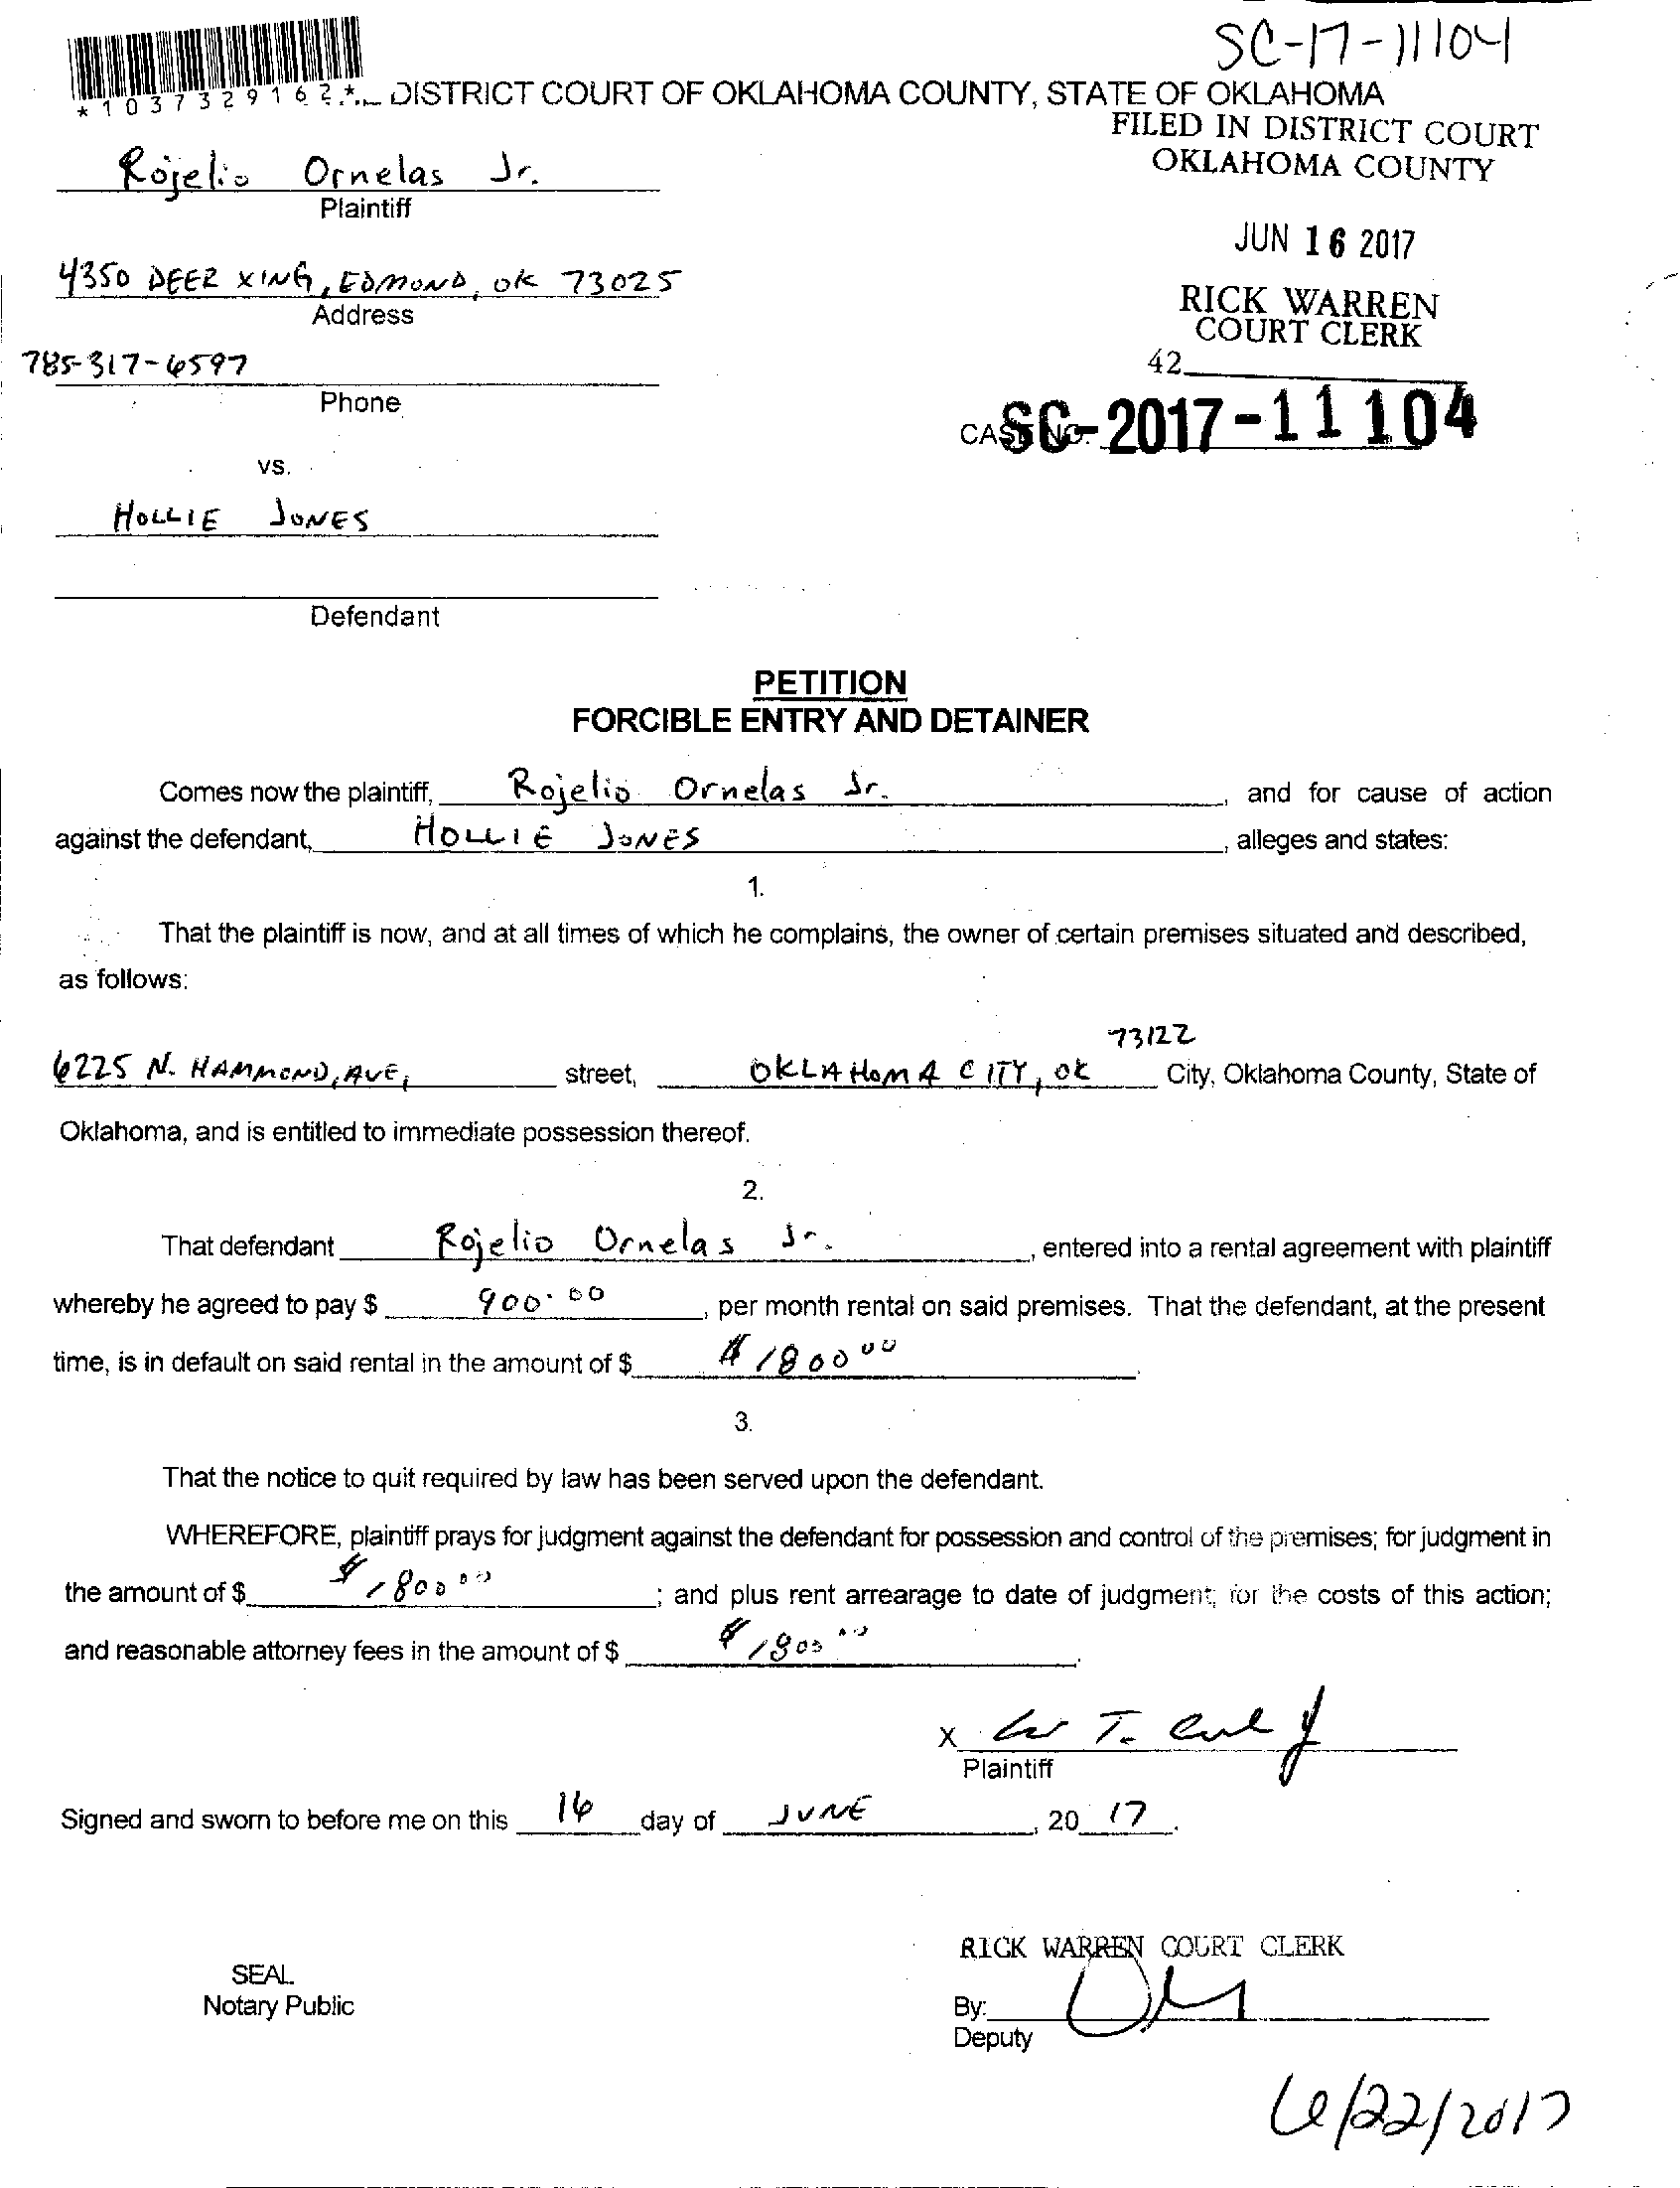 SC-17-11104
*1037329162*
DISTRICT COURT OF OKLAHOMA COUNTY, STATE OF OKLAHOMA
FILED IN DISTRICT COURT
OKLAHOMA COUNTY
Rojelio Ornelas Jr.
Plaintiff
JUN 16 2017
4350 DEER XING, EDMOND, OK 73025
Address
RICK WARREN
COURT CLERK
785-317-6597
42
Phone
CASE NO. SC-2017-11104
vs.
HOLLIE JONES
Defendant
PETITION
FORCIBLE ENTRY AND DETAINER
Comes now the plaintiff, Rojelio Ornelas Jr. , and for cause of action
against the defendant, HOLLIE JONES , alleges and states:
1.
That the plaintiff is now, and at all times of which he complains, the owner of certain premises situated and described,
as follows:
73122
6225 N. HAMMOND, AVE, street, OKLAHOMA CITY, OK City, Oklahoma County, State of
Oklahoma, and is entitled to immediate possession thereof.
2.
That defendant Rojelio Ornelas Jr. , entered into a rental agreement with plaintiff
whereby he agreed to pay $ 900.00 , per month rental on said premises. That the defendant, at the present
time, is in default on said rental in the amount of $ $1800 00 .
3.
That the notice to quit required by law has been served upon the defendant.
WHEREFORE, plaintiff prays for judgment against the defendant for possession and control of the premises; for judgment in
the amount of $ $1800 00 ; and plus rent arrearage to date of judgment; for the costs of this action;
and reasonable attorney fees in the amount of $ $1800 00 .
X
Plaintiff
Signed and sworn to before me on this 16 day of JUNE , 20 17 .
RICK WARREN COURT CLERK
SEAL
Notary Public
By:
Deputy
6/22/2017